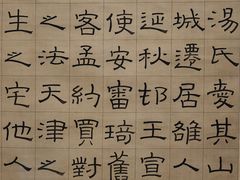 湯氏愛其山
城遷居雒人
延秋邨王宣
使安審琦舊
客孟約買對
之法天津之
生之宅他人